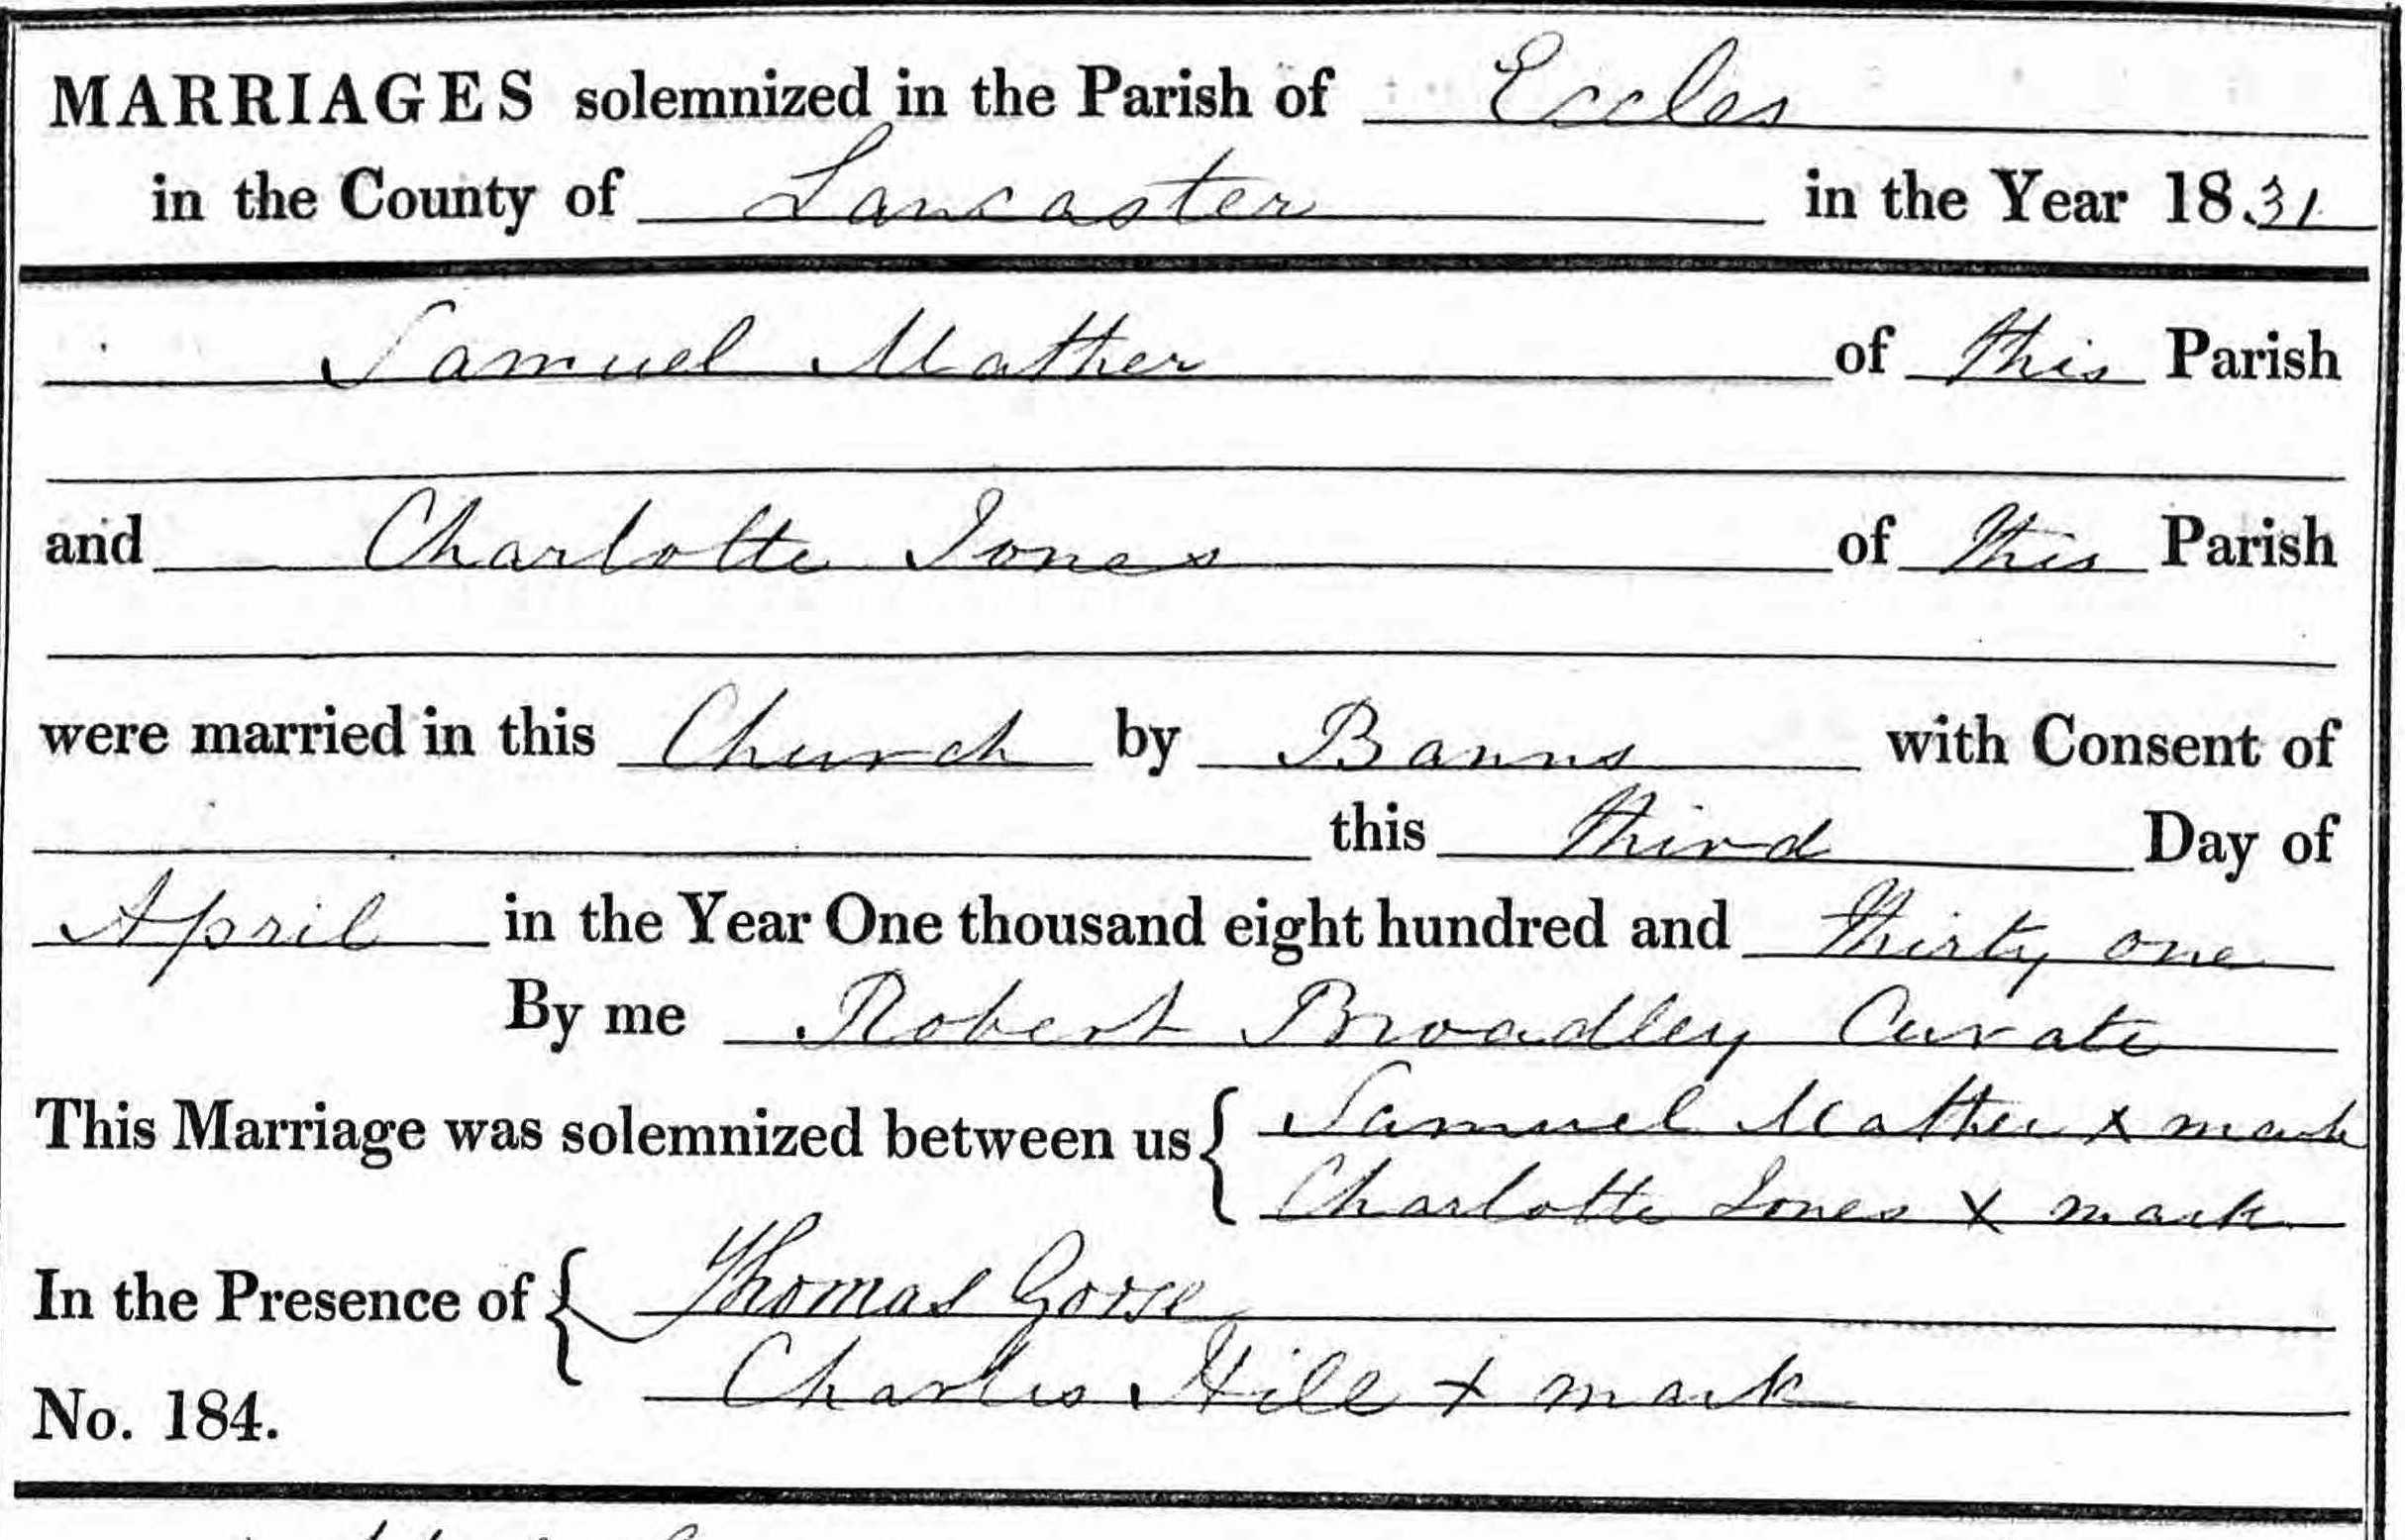 MARRIAGES solemnized in the Parish of Eccles
in the County of Lancaster in the Year 18 31
Samuel Mather of this Parish
and Charlotte Jones of this Parish
were married in this Church by Banns with Consent of
this third Day of
April in the Year One thousand eight hundred and thirty one
By me Robert Broadley Curate
This Marriage was solemnized between us { Samuel Mather x mark
Charlotte Jones x mark
In the Presence of { Thomas
Charles Hill x mark
No. 184.